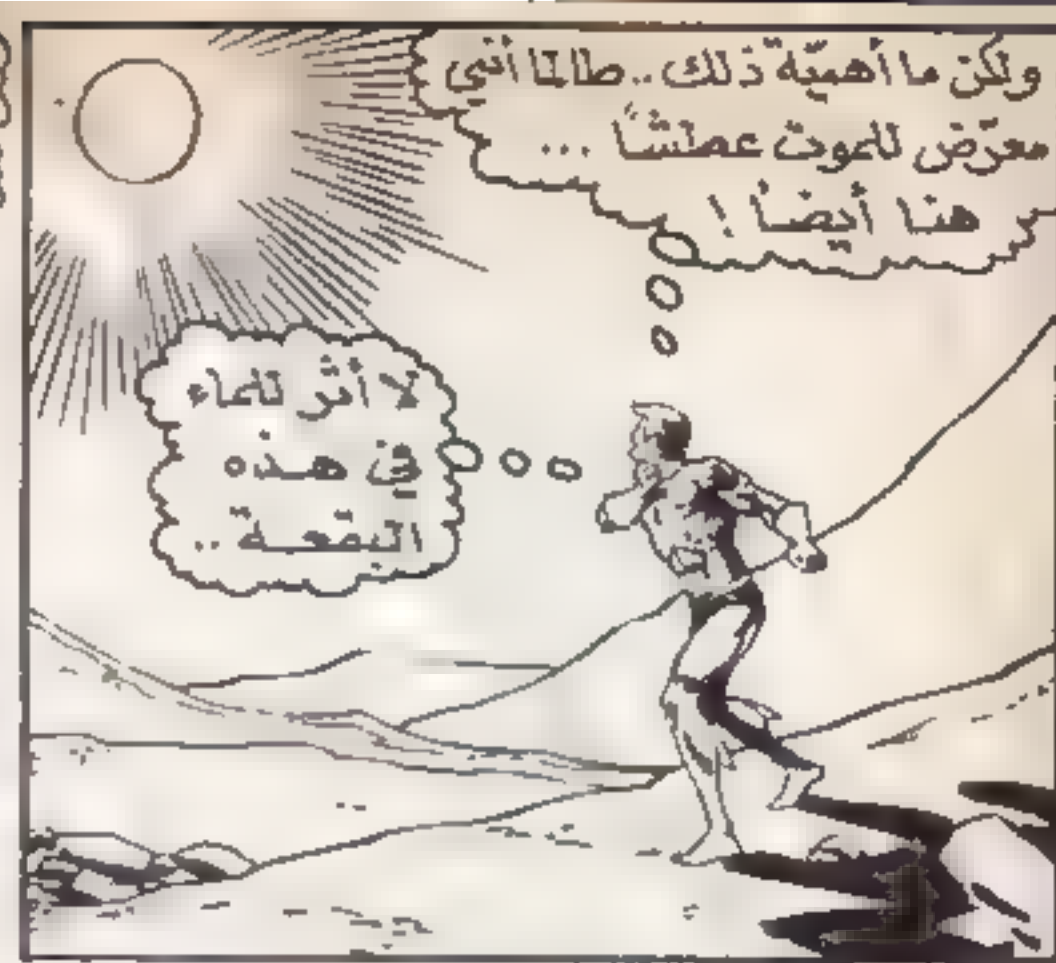 ولكن ما أهميّة ذلك .. طالما أنني
معرّض للموت عطشاً ...
هنا أيضاً !
لا أثر للماء
في هذه
البقعـة ..